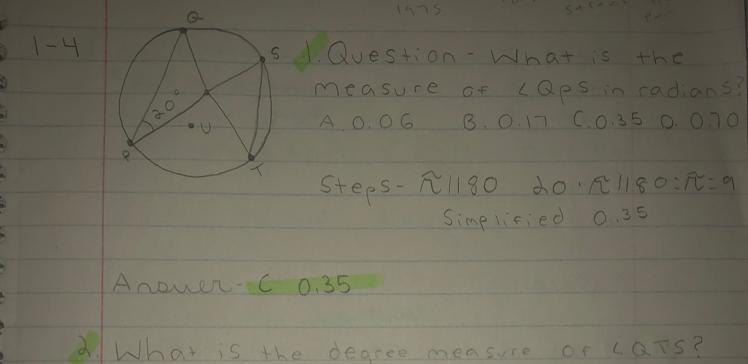 1975
Q
1-4
S
1. Question - What is the
measure of <QPS in radians?
20°
A. 0.06 B. 0.17 C. 0.35 D. 0.70
U
P
T
Steps - π/180 20 · π/180 = π = 9
Simplified 0.35
Answer - C 0.35
2. What is the degree measure of <QTS?